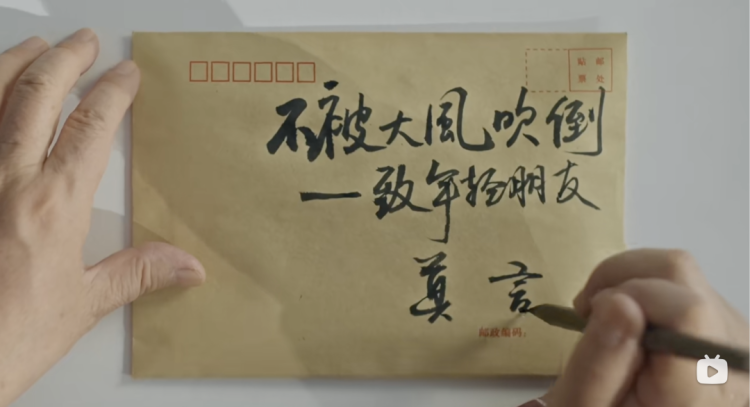 贴 邮
票 处
不被大風吹倒
—致年轻朋友
莫 言
邮政编码: